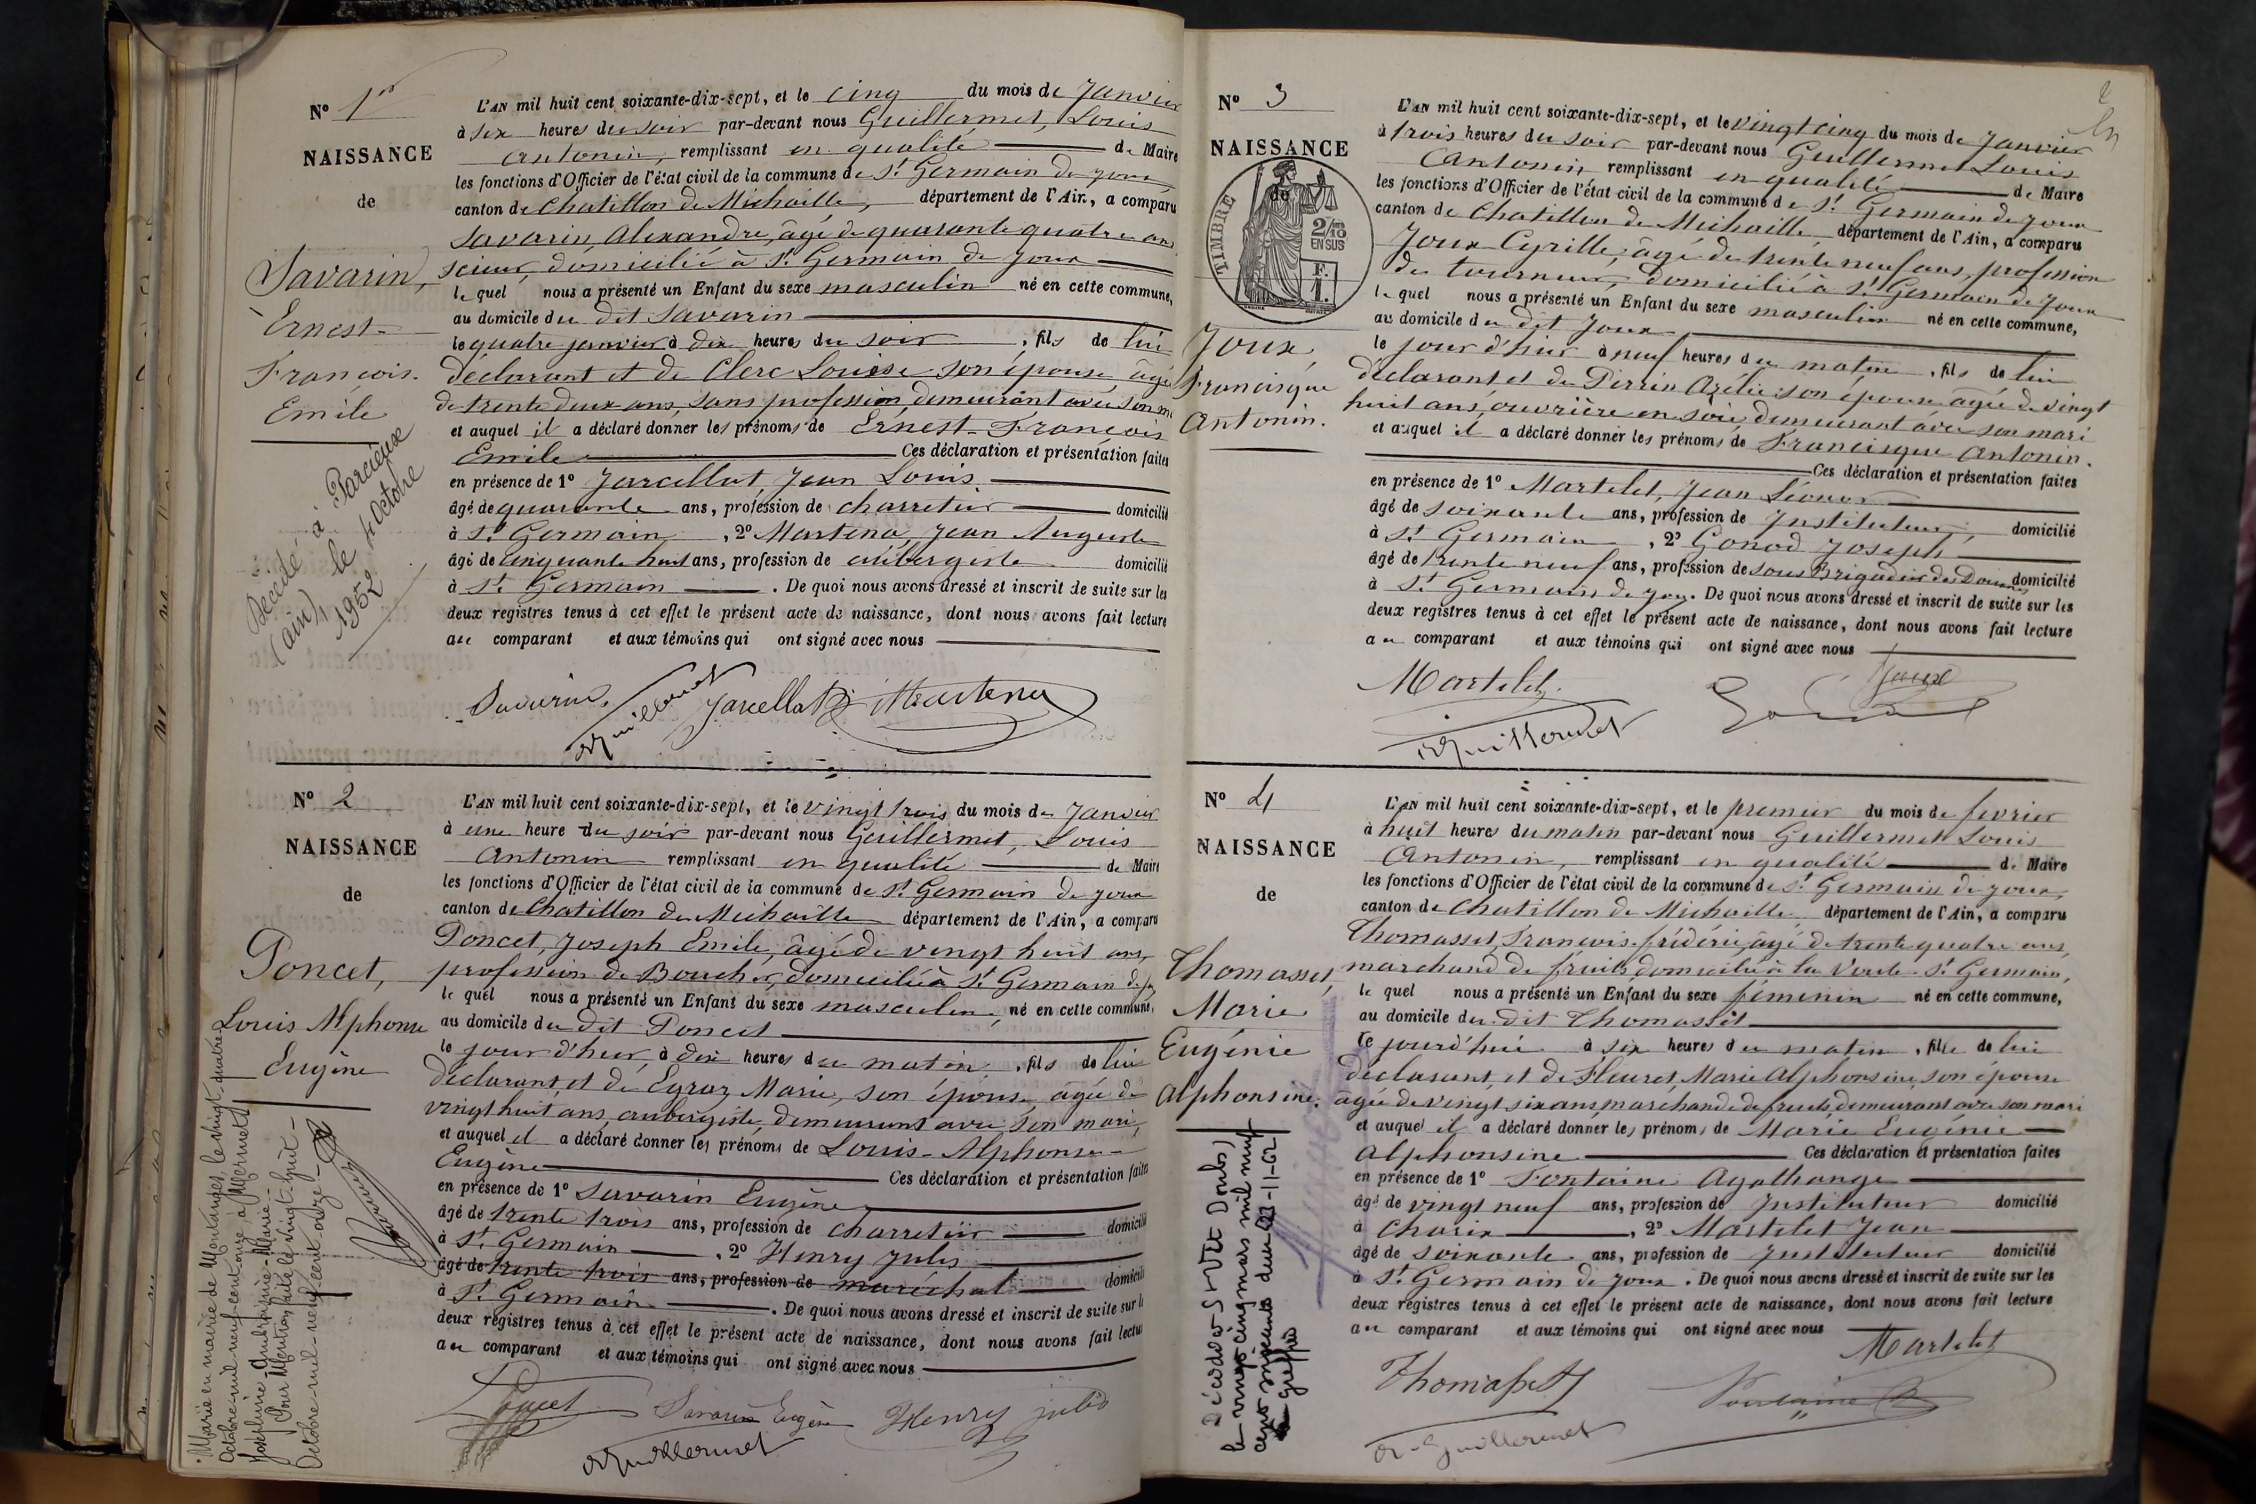 N° 1er
NAISSANCE
de
Savarin,
Ernest-
François-
Emile
Décédé à Parcieux
(ain) le 4 Octobre
1952
L'AN mil huit cent soixante-dix-sept, et le cinq du mois de Janvier
à six heures du soir par-devant nous Guillermet, Louis
Antonin, remplissant en qualité de Maire
les fonctions d'Officier de l'état civil de la commune de St Germain de joux,
canton de Chatillon de Michaille, département de l'Ain, a comparu
Savarin, Alexandre, âgé de quarante quatre ans
scieur, domicilié à St Germain de joux
le quel nous a présenté un Enfant du sexe masculin né en cette commune,
au domicile du dit Savarin
le quatre janvier à dix heures du soir, fils de lui
déclarant et de Clerc Louise son épouse, âgée
de trente deux ans, sans profession, demeurant avec son m
et auquel il a déclaré donner les prénoms de Ernest-François
Emile Ces déclaration et présentation faites
en présence de 1° Jarcellat, Jean Louis
âgé de quarante ans, profession de charretier domicilié
à St Germain, 2° Martena, Jean Auguste
âgé de cinquante huit ans, profession de aubergiste domicilié
à St Germain. De quoi nous avons dressé et inscrit de suite sur les
deux registres tenus à cet effet le présent acte de naissance, dont nous avons fait lecture
au comparant et aux témoins qui ont signé avec nous
Savarin Guillermet Jarcellat Martena
N° 2
NAISSANCE
de
Poncet,
Louis Alphonse
Eugène
Marié en mairie de Montanges le vingt-quatre
Octobre-mil-neuf-cent-onze à Mermet
Joséphine-Anthelmine-Marie-
Pour Mention faite le vingt-huit-
Octobre-mil-neuf-cent-onze-
L'AN mil huit cent soixante-dix-sept, et le vingt trois du mois de Janvier
à une heure du soir par-devant nous Guillermet, Louis
Antonin remplissant en qualité de Maire
les fonctions d'Officier de l'état civil de la commune de St Germain de joux
canton de Chatillon de Michaille département de l'Ain, a comparu
Poncet, Joseph Emile, âgé de vingt huit ans,
profession de Boucher, domicilié à St Germain de j
le quel nous a présenté un Enfant du sexe masculin, né en cette commune,
au domicile du dit Poncet
le jour d'hier, à dix heures du matin, fils de lui
déclarant, et de Eyraz Marie, son épouse, âgée de
vingt huit ans, aubergiste, demeurant avec son mari,
et auquel il a déclaré donner les prénoms de Louis-Alphonse-
Eugène Ces déclaration et présentation faites
en présence de 1° Savarin Eugène
âgé de trente trois ans, profession de charretier domicilié
à St Germain, 2° Henry Jules
âgé de trente trois ans, profession de maréchal domicilié
à St Germain. De quoi nous avons dressé et inscrit de suite sur l
deux registres tenus à cet effet le présent acte de naissance, dont nous avons fait lectu
au comparant et aux témoins qui ont signé avec nous
Poncet Savarin Eugène Henry jules
Guillermet
2
N° 3
NAISSANCE
de
TIMBRE
2/10
EN SUS
F.
1.
Joux,
Francisque
Antonin.
L'AN mil huit cent soixante-dix-sept, et le vingt cinq du mois de Janvier
à trois heures du soir par-devant nous Guillermet Louis
Antonin remplissant en qualité de Maire
les fonctions d'Officier de l'état civil de la commune de St Germain de joux
canton de Chatillon de Michaille département de l'Ain, a comparu
Joux Cyrille, âgé de trente neuf ans, profession
de tourneur, domicilié à St Germain de joux
le quel nous a présenté un Enfant du sexe masculin né en cette commune,
au domicile du dit Joux
le jour d'hier à neuf heures du matin, fils de lui
déclarant et de Perrin Azélie son épouse âgée de vingt
huit ans, ouvrière en soie demeurant avec son mari
et auquel il a déclaré donner les prénoms de Francisque Antonin.
Ces déclaration et présentation faites
en présence de 1° Martelet, Jean Léonor
âgé de soixante ans, profession de Instituteur, domicilié
à St Germain, 2° Gonod Joseph
âgé de trente neuf ans, profession de sous Brigadier des Douanes domicilié
à St Germain de joux. De quoi nous avons dressé et inscrit de suite sur les
deux registres tenus à cet effet le présent acte de naissance, dont nous avons fait lecture
au comparant et aux témoins qui ont signé avec nous
Martelet Joux
Guillermet
N° 4
NAISSANCE
de
Thomasset,
Marie
Eugénie
Alphonsine.
Décédée à St Vit (Doubs)
le vingt cinq mars mil neuf
cent soixante deux
Le greffier
L'AN mil huit cent soixante-dix-sept, et le premier du mois de fevrier
à huit heures du matin par-devant nous Guillermet Louis
Antonin, remplissant en qualité de Maire
les fonctions d'Officier de l'état civil de la commune de St Germain de joux,
canton de Chatillon de Michaille département de l'Ain, a comparu
Thomasset, François frédéric, âgé de trente quatre ans,
marchand de fruits domicilié à la Voute-St Germain,
le quel nous a présenté un Enfant du sexe féminin né en cette commune,
au domicile du dit Thomasset
le jourd'hui à six heures du matin, fille de lui
déclarant, et de Fleuret, Marie Alphonsine, son épouse
âgée de vingt six ans, marchande de fruits, demeurant avec son mari
et auquel il a déclaré donner les prénoms de Marie Eugénie
Alphonsine Ces déclaration et présentation faites
en présence de 1° Fontaine Agathange
âgé de vingt neuf ans, profession de Instituteur domicilié
à Charix, 2° Martelet Jean
âgé de soixante ans, profession de Instituteur domicilié
à St Germain de joux. De quoi nous avons dressé et inscrit de suite sur les
deux registres tenus à cet effet le présent acte de naissance, dont nous avons fait lecture
au comparant et aux témoins qui ont signé avec nous
Martelet
Thomasset Fontaine
Guillermet